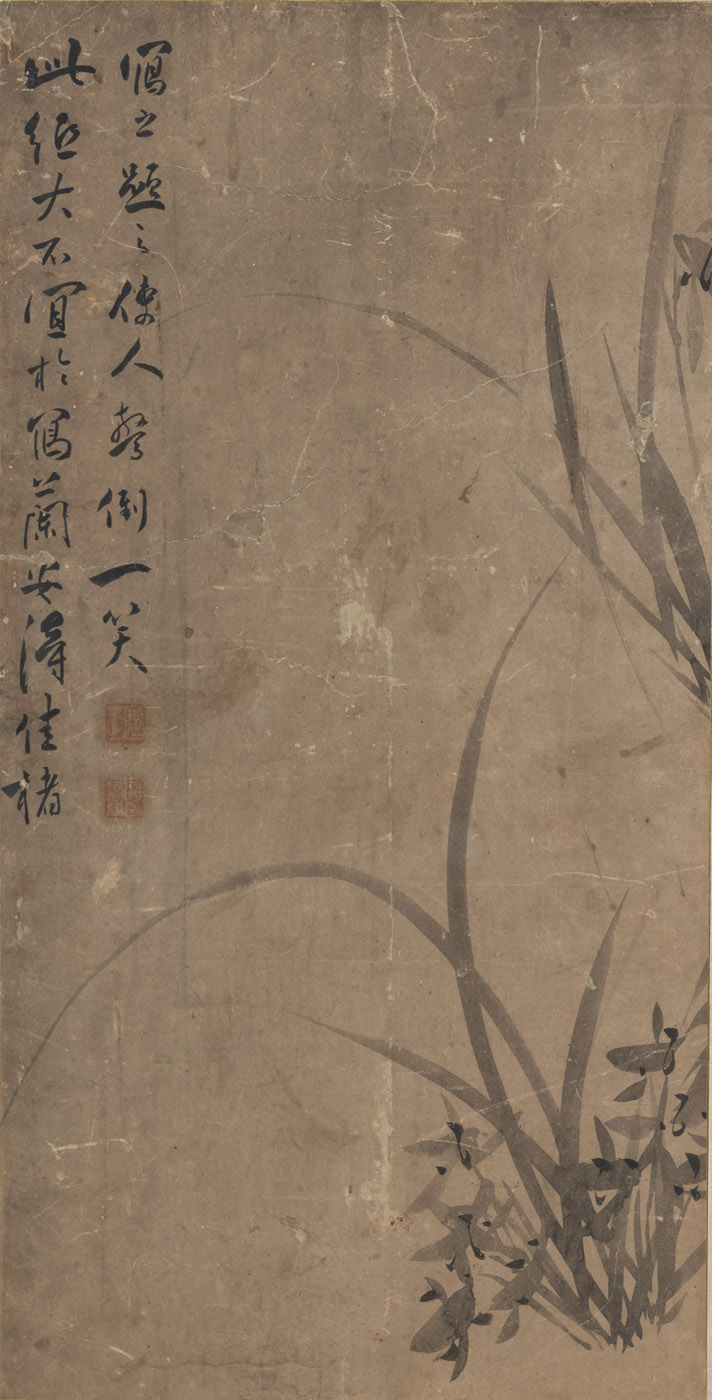 此紙大不宜於寫蘭安得佳楮
寫之題之使人驚倒一笑